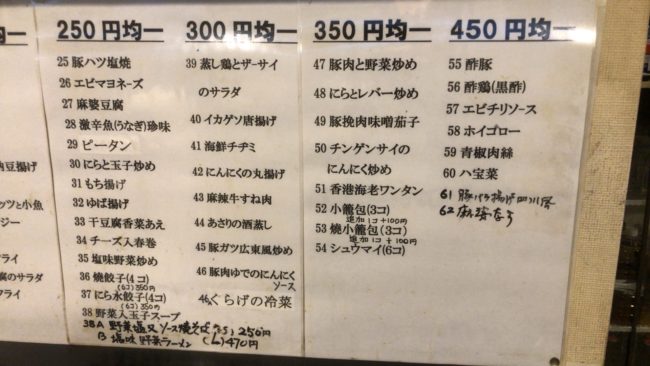 納豆揚げ
ナッツと小魚
フライ
250円均一
25 豚ハツ塩焼
26 エビマヨネーズ
27 麻婆豆腐
28 激辛魚(うなぎ)珍味
29 ピータン
30 にらと玉子炒め
31 もち揚げ
32 ゆば揚げ
33 干豆腐香菜あえ
34 チーズ入春巻
35 塩味野菜炒め
36 燒餃子(4コ)
(6コ)350円
37 にら水餃子(4コ)
(6コ)350円
38 野菜入玉子スープ
38A 野菜塩又ソース焼そば(S)250円
B 塩味野菜ラーメン (L)470円
300円均一
39 蒸し鶏とザーサイ
のサラダ
40 イカゲソ唐揚げ
41 海鮮チヂミ
42 にんにくの丸揚げ
43 麻辣牛すね肉
44 あさりの酒蒸し
45 豚ガツ広東風炒め
46 豚肉ゆでのにんにく
ソース
46 くらげの冷菜
350円均一
47 豚肉と野菜炒め
48 にらとレバー炒め
49 豚挽肉味噌茄子
50 チンゲンサイの
にんにく炒め
51 香港海老ワンタン
52 小籠包(3コ)
追加1コ+100円
53 燒小籠包(3コ)
追加1コ+100円
54 シュウマイ(6コ)
450円均一
55 酢豚
56 酢鶏(黒酢)
57 エビチリソース
58 ホイゴロー
59 青椒肉絲
60 八宝菜
61 豚バラ揚げ四川風
62 麻婆なす